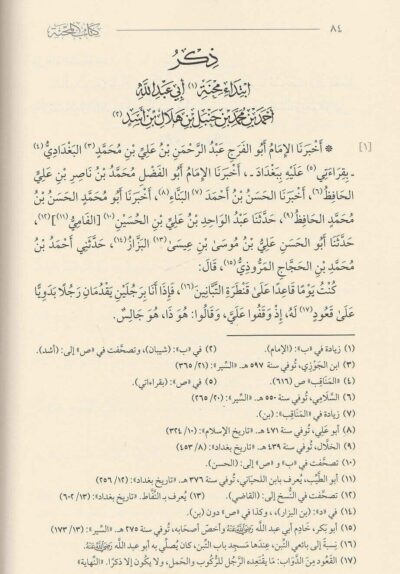 ٨٤
كتاب المحنة
ذِكْرُ
ابْتِدَاءِ مِحْنَةِ (١) أَبِي عَبْدِ اللهِ
أَحْمَدَ بْنِ مُحَمَّدِ بْنِ حَنْبَلِ بْنِ هِلَالِ بْنِ أَسَدٍ (٢)
[١] * أَخْبَرَنَا الإِمَامُ أَبُو الفَرَجِ عَبْدُ الرَّحْمَنِ بْنُ عَلِيِّ بْنِ مُحَمَّدٍ (٣) البَغْدَادِيُّ (٤)
ـ بِقِرَاءَتِي (٥) عَلَيْهِ بِبَغْدَادَ ـ، أَخْبَرَنَا الإِمَامُ أَبُو الفَضْلِ مُحَمَّدُ بْنُ نَاصِرِ بْنِ عَلِيٍّ
الحَافِظُ (٦)، أَخْبَرَنَا الحَسَنُ بْنُ أَحْمَدَ (٧) البَنَّاءِ (٨)، أَخْبَرَنَا أَبُو مُحَمَّدٍ الحَسَنُ بْنُ
مُحَمَّدٍ الحَافِظُ (٩)، حَدَّثَنَا عَبْدُ الوَاحِدِ بْنُ عَلِيِّ بْنِ الحُسَيْنِ (١٠) [الفَامِيُّ (١١)] (١٢)،
حَدَّثَنَا أَبُو الحَسَنِ عَلِيُّ بْنُ مُوسَى بْنِ عِيسَى (١٣) البَزَّازُ (١٤)، حَدَّثَنِي أَحْمَدُ بْنُ
مُحَمَّدِ بْنِ الحَجَّاجِ المَرُّوذِيُّ (١٥)، قَالَ:
كُنْتُ يَوْمًا قَاعِدًا عَلَىٰ قَنْطَرَةِ التَّبَّانِينَ (١٦)، فَإِذَا أَنَا بِرَجُلَيْنِ يَقْدُمَانِ رَجُلًا بَدَوِيًّا
عَلَىٰ قَعُودٍ (١٧) لَهُ، إِذْ وَقَفُوا عَلَيَّ، وَقَالُوا: هُوَ ذَا، هُوَ جَالِسٌ.
(١) زيادة في «ب»: (الإمام).
(٢) في «ب»: (شيبان)، وتصحَّفت في «ص» إلى: (أشد).
(٣) ابن الجَوْزِي، تُوفي سنة ٥٩٧ هـ. «السِّير»: (٢١/ ٣٦٥)
(٤) «المَناقِب» ص (٦١٦).
(٥) في «ص»: (بقراءاتي).
(٦) السَّلامِي، تُوفي سنة ٥٥٠ هـ. «السِّير»: (٢٠/ ٢٦٥)
(٧) زيادة في «المَناقِب»: (بن).
(٨) أبو عَلِي، تُوفي سنة ٤٧١ هـ. «تاريخ الإسلام»: (١٠/ ٣٢٤)
(٩) الخَلَّال، تُوفي سنة ٤٣٩ هـ. «تاريخ بغداد»: (٨/ ٤٥٣)
(١٠) تصحَّفت في «ب» و «ص» إلى: (الحسن).
(١١) أبو الطَّيِّب، يُعرف بابن اللحياني، تُوفي سنة ٣٧٦ هـ. «تاريخ بغداد»: (١٢/ ٢٥٦)
(١٢) تصحَّفت في النُّسخ إلى: (القاضي).
(١٣) يُعرف بـ النَّفَّاط. «تاريخ بغداد»: (١٣/ ٦٠٢)
(١٤) في «د»: (بن البزار)، ، وكذا في «ص» دون (بن).
(١٥) أبو بَكر، خَادِم أبي عبد الله رَضِيَ اللهُ عَنْهُ وأخصّ أصحَابه، تُوفي سنة ٢٧٥ هـ. «السِّير»: (١٣/ ١٧٣)
(١٦) نِسبةً إلى بائعي التِّبن، عِندَها مَسجِد باب التِّبن، كان يُصلِّي به أبو عبد الله رَضِيَ اللهُ عَنْهُ.
(١٧) القَعُود مِنَ الدَّوَاب: مَا يَقتَعِدُه الرَّجل للرُّكوب والحَمل، ولا يكون إلا ذكرًا. «النِّهاية»